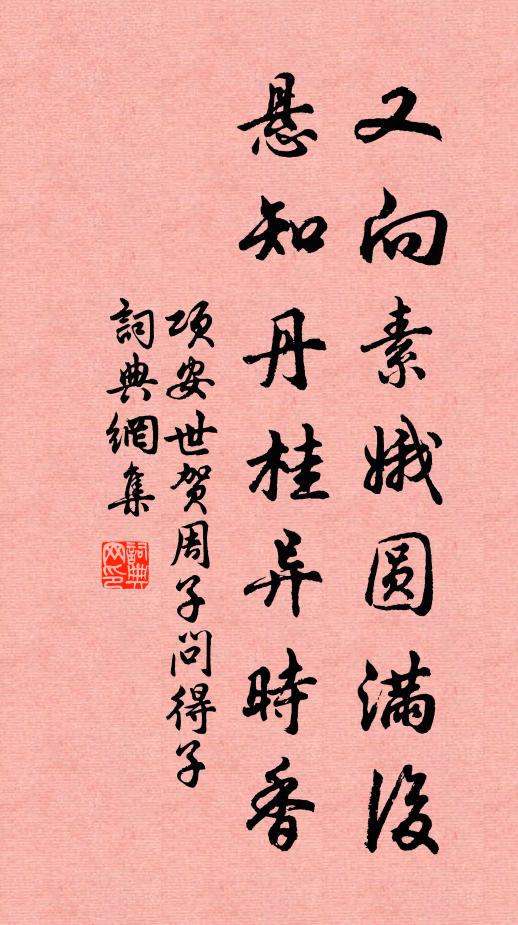 又向素娥圆满後
悬知丹桂异時香
项安世贺周子问得子
詞典網集
詞典网印